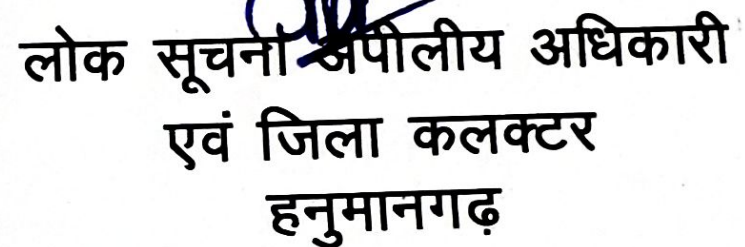 लोक सूचना अपीलीय अधिकारी
एवं जिला कलक्टर
हनुमानगढ़